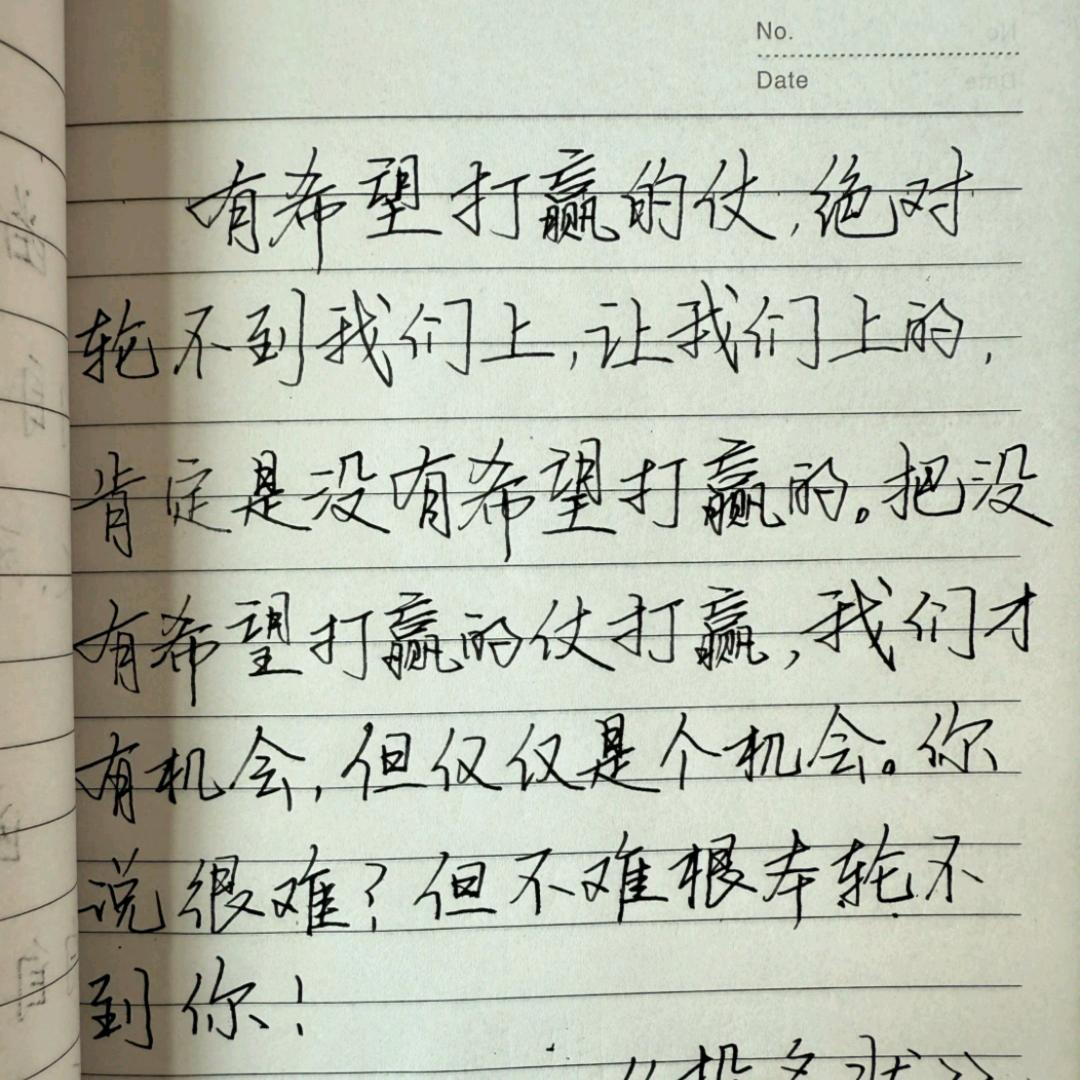 No.
Date
有希望打赢的仗,绝对
轮不到我们上,让我们上的,
肯定是没有希望打赢的。把没
有希望打赢的仗打赢,我们才
有机会,但仅仅是个机会。你
说很难?但不难根本轮不
到你!
《投名状》